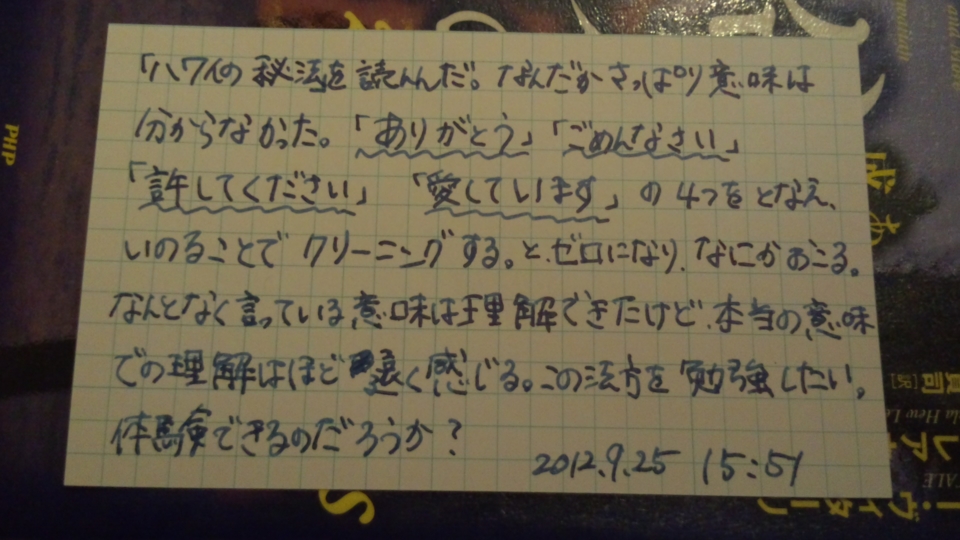 「ハワイの秘法を読んんだ。なんだかさっぱり意味は
分からなかった。「ありがとう」「ごめんなさい」
「許してください」「愛しています」の4つをとなえ、
いのることでクリーニングする。と、ゼロになり、なにかおこる。
なんとなく言っている意味は理解できたけど、本当の意味
での理解はほど遠く感じる。この法方を勉強したい。
体験できるのだろうか?
2012.9.25 15:51
PHP